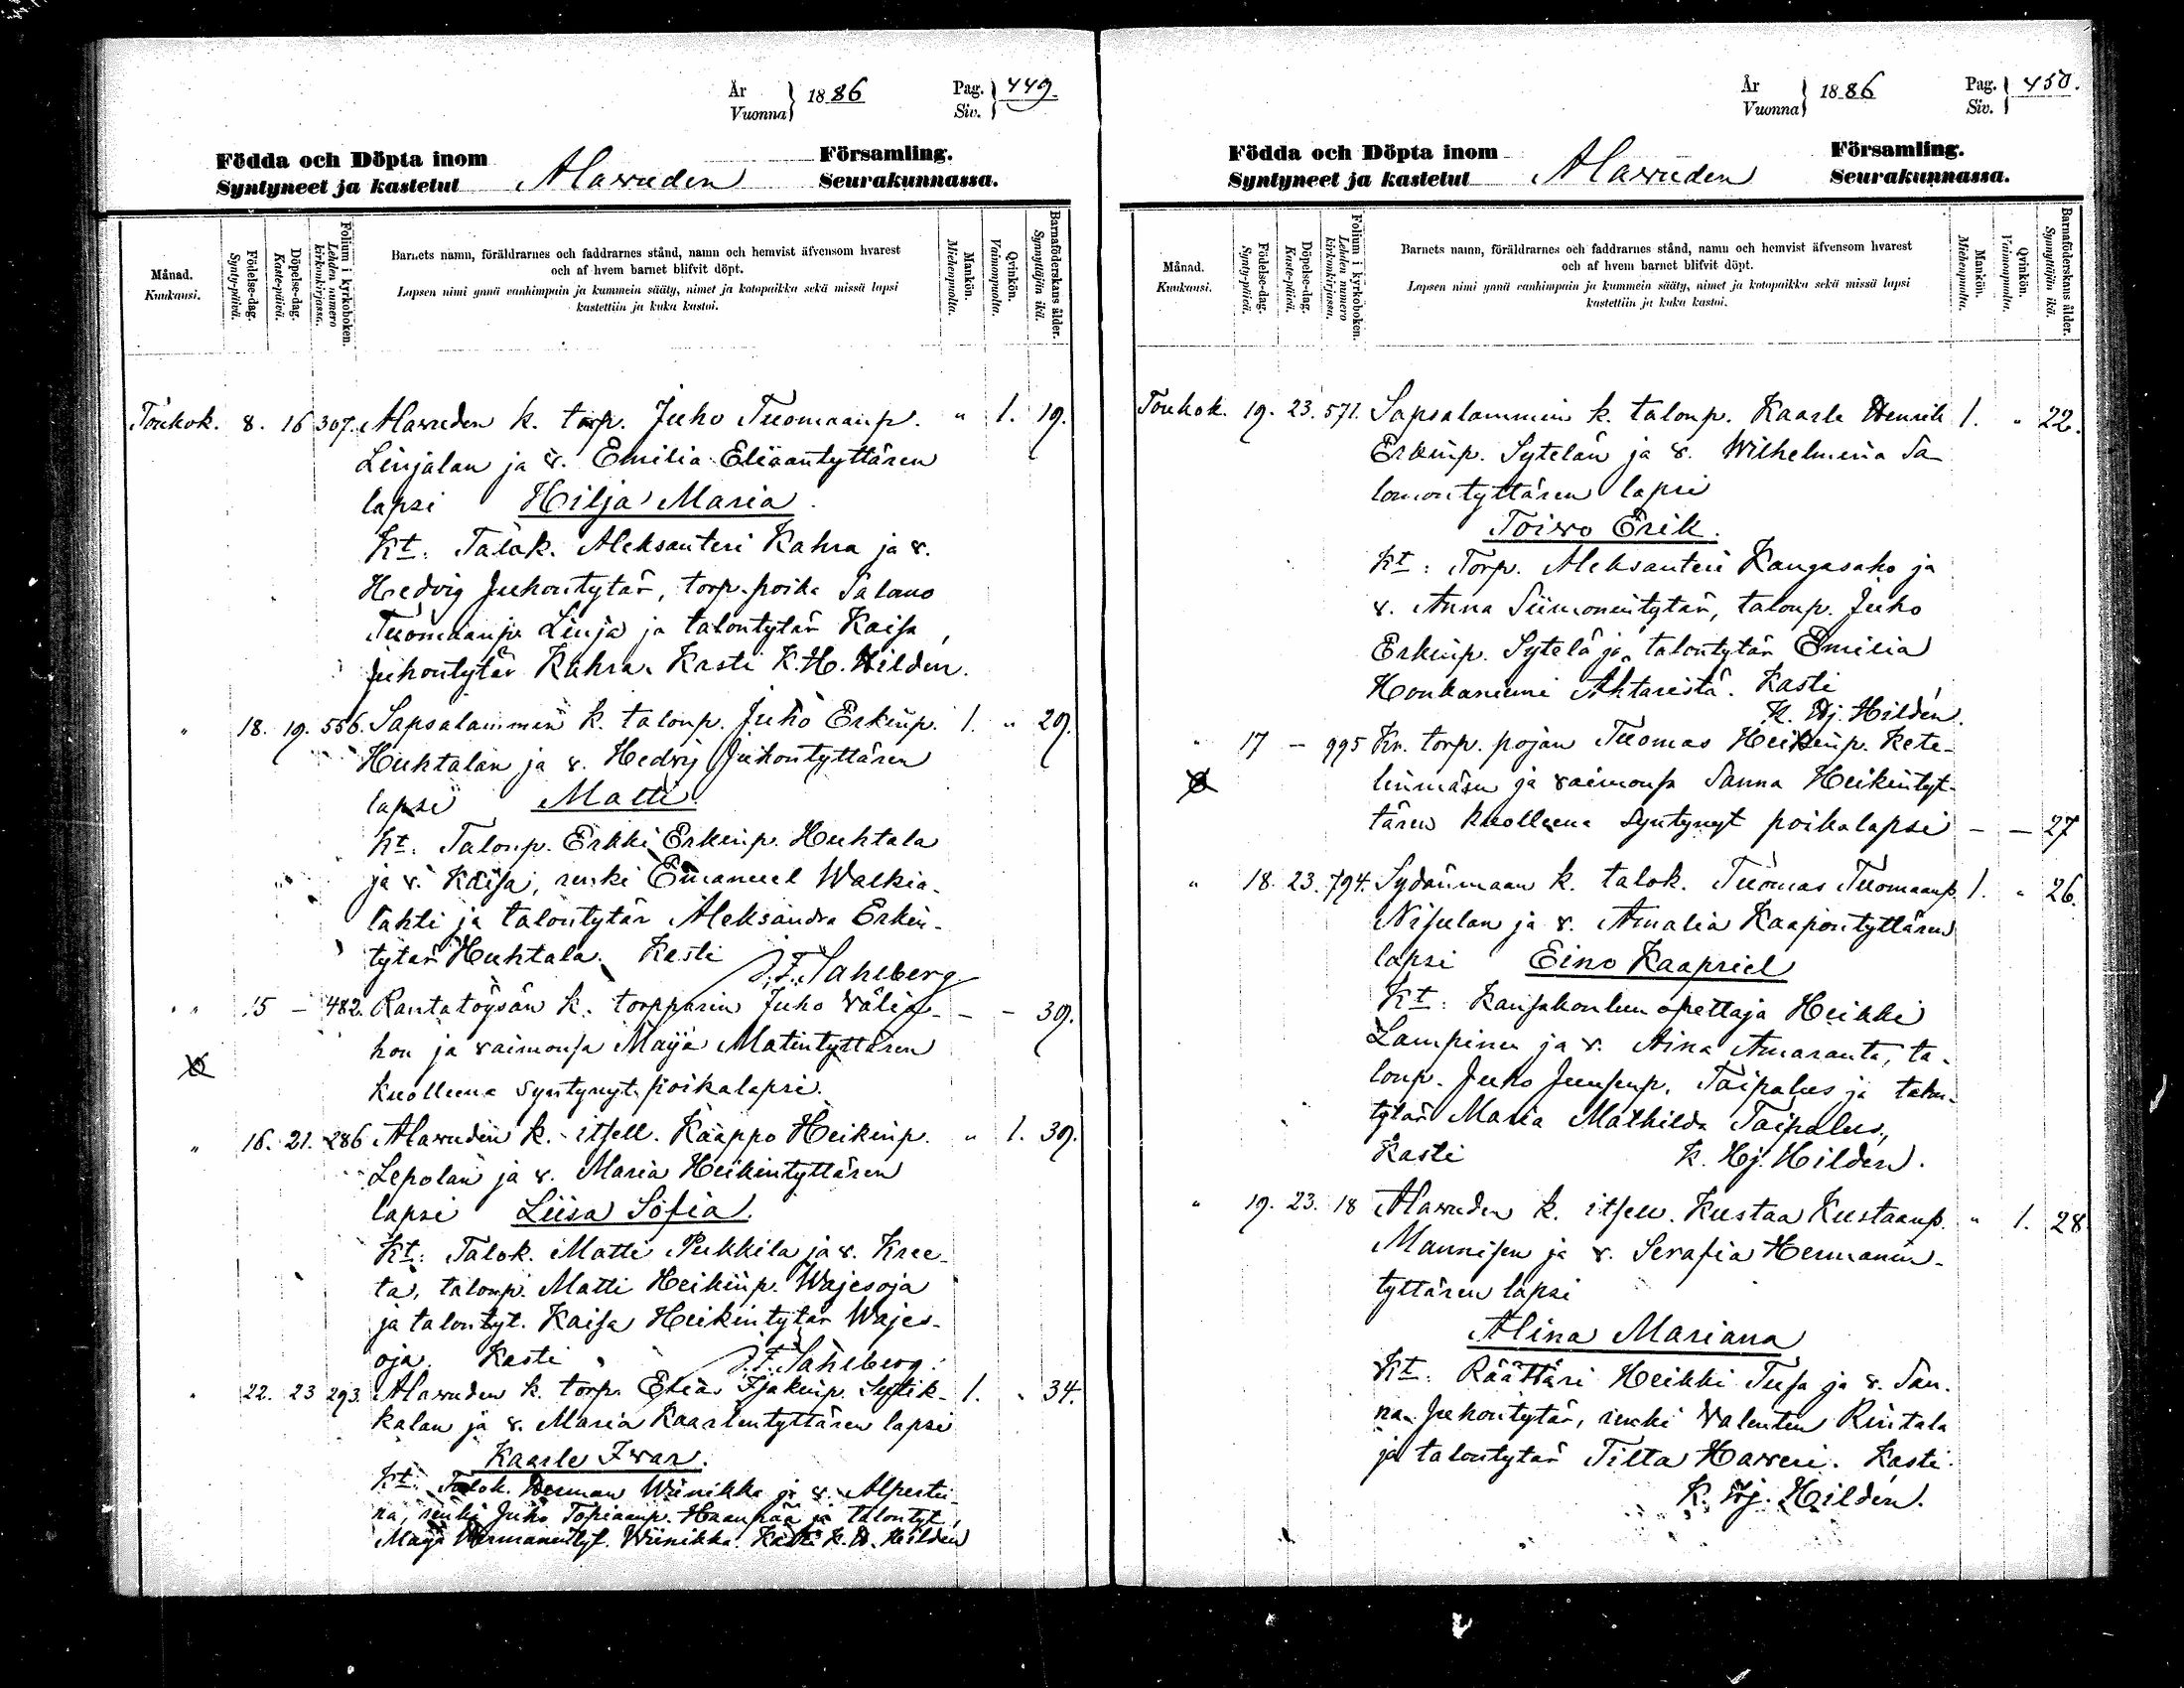 År
Vuonna } 1886 Pag.
Siv. } 449.
Födda och Döpta inom Församling.
Syntyneet ja kastetut Alavuden Seurakunnassa.
Månad.
Kuukausi.
Födelse-dag.
Synty-päivä.
Döpelse-dag.
Kaste-päivä.
Folium i kyrkoboken.
Lehden numero kirkonkirjassa.
Barnets namn, föräldrarnes och faddrarnes stånd, namn och hemvist äfvensom hvarest
och af hvem barnet blifvit döpt.
Lapsen nimi ynnä vanhimpain ja kummein sääty, nimet ja kotopaikka sekä missä lapsi
kastettiin ja kuka kastoi.
Mankön.
Miehenpuolta.
Qvinkön.
Vaimonpuolta.
Barnaföderskans ålder.
Synnyttäjän ikä.
Toukok. 8. 16 307. Alavuden k. torp. Juho Tuomaanp. " 1. 19.
Linjalan ja v. Emilia Eliaantyttären
lapsi Hilja Maria.
Kt: Talok. Aleksanteri Kahra ja v.
Hedvig Juhontytär, torp. poika Salomo
Tuomaanp. Linja ja talontytär Kaisa
Juhontytär Kahra. Kasti K. H. Hilden.
" 18. 19. 556. Sapsalammin k. talonp. Juho Erkinp. 1. " 29.
Huhtalan ja v. Hedvig Juhontyttären
lapsi Matti.
Kt: Talonp. Erkki Erkinp. Huhtala
ja v. Kaisa, renki Emanuel Walkia-
lahti ja talontytär Aleksandra Erkin-
tytär Huhtala. Kasti
J. F. Sahlberg
" 15 - 482. Rantatöysän k. torpparin Juho Välia- - - 39.
hon ja vaimonsa Maija Matintyttären
kuolleena syntynyt poikalapsi.
" 16. 21. 286 Alavuden k. itsell. Kaappo Heikinp. " 1. 39.
Lepolan ja v. Maria Heikintyttären
lapsi Liisa Sofia.
Kt: Talok. Matti Pukkila ja v. Kree-
ta, talonp. Matti Heikinp. Wajesoja
ja talontyt. Kaisa Heikintytär Wajes-
oja. Kasti J. F. Sahlberg.
" 22. 23 293. Alavuden k. torp. Elia Isakinp. 1. " 34.
kalan ja v. Maria Kaarlentyttären lapsi
Kaarle Iwar.
Kt: Talok. Herman Wiinikka ja v. Alperti-
na, renki Juho Topiaanp. Haanpää ja talontyt.
Maija Hermanintyt. Wiinikka. Kasti K. H. Hilden
År
Vuonna } 1886 Pag.
Siv. } 450.
Födda och Döpta inom Församling.
Syntyneet ja kastetut Alavuden Seurakunnassa.
Månad.
Kuukausi.
Födelse-dag.
Synty-päivä.
Döpelse-dag.
Kaste-päivä.
Folium i kyrkoboken.
Lehden numero kirkonkirjassa.
Barnets namn, föräldrarnes och faddrarnes stånd, namn och hemvist äfvensom hvarest
och af hvem barnet blifvit döpt.
Lapsen nimi ynnä vanhimpain ja kummein sääty, nimet ja kotopaikka sekä missä lapsi
kastettiin ja kuka kastoi.
Mankön.
Miehenpuolta.
Qvinkön.
Vaimonpuolta.
Barnaföderskans ålder.
Synnyttäjän ikä.
Toukok. 19. 23. 571. Sapsalammin k. talonp. Kaarle Henrik 1. " 22.
Erkinp. Sytelän ja v. Wilhelmina Sa-
lomontyttären lapsi
Toiwo Erik.
Kt: Torp. Aleksanteri Kangasaho ja
v. Anna Siimonintytär, talonp. Juho
Erkinp. Sytelä ja talontytär Emilia
Honkaniemi Ahtaristä. Kasti
K. Hj. Hilden.
" 17 - 995 Kr. torp. pojan Tuomas Heikinp. Kete-
linmäen ja vaimonsa Sanna Heikintyt-
tären kuolleena syntynyt poikalapsi - - 27
" 18. 23. 794. Sydänmaan k. talok. Tuomas Tuomaanp. 1. " 26.
Nisulan ja v. Amalia Kaapontyttären
lapsi Eino Kaapriel
Kt: Kansakoulun opettaja Heikki
Lampinen ja v. Aina Amaranta, ta-
lonp. Juho Juusenp. Taipalus ja talon-
tytär Maria Mathilda Taipalus,
Kasti K. Hj. Hilden.
" 19. 23. 18 Alavuden k. itsell. Kustaa Kustaanp. " 1. 28
Mannisen ja v. Serafia Hermanin-
tyttären lapsi
Alina Mariana
Kt: Räättäri Heikki Tusa ja v. San-
na Juhontytär, renki Valentin Rintala
ja talontytär Tilta Haveri. Kasti
K. Hj. Hilden.